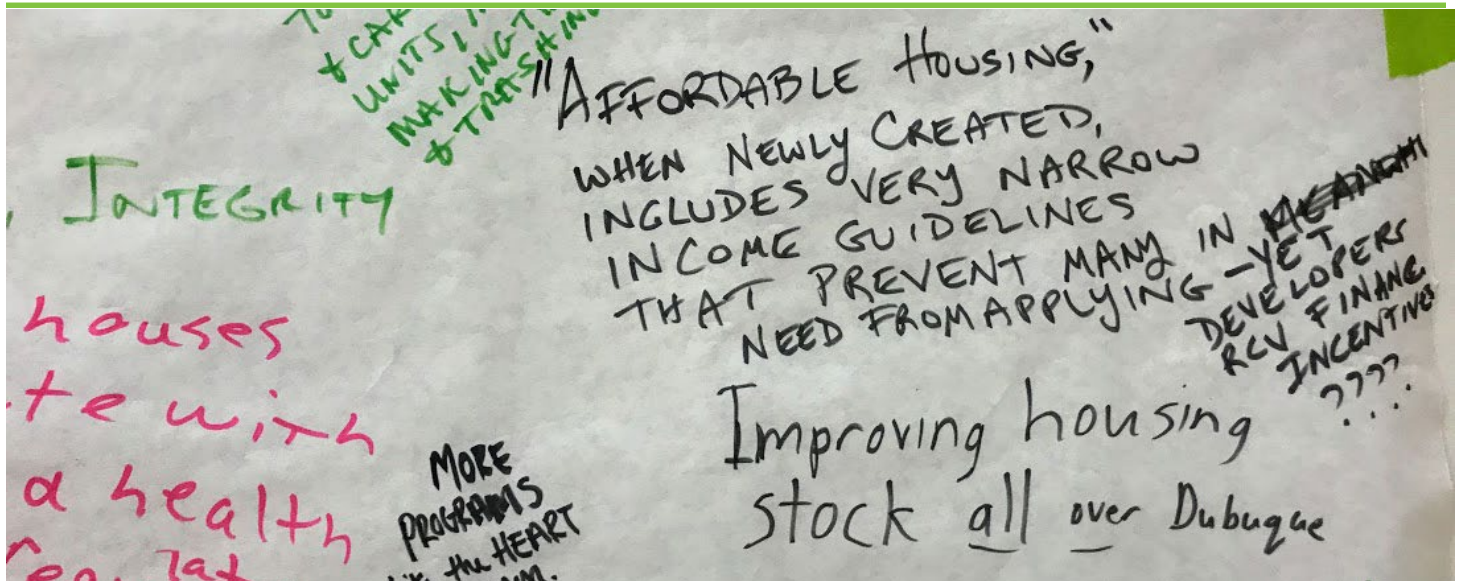 & CAR
UNITS,
MAKING
& TRASHING
, INTEGRITY
houses
te with
a health
MORE
PROGRAMS
the HEART
"AFFORDABLE HOUSING,"
WHEN NEWLY CREATED,
INCLUDES VERY NARROW
INCOME GUIDELINES
THAT PREVENT MANY IN
NEED FROM APPLYING - YET
DEVELOPERS
RCV FINANC
INCENTIVES
????
Improving housing
stock all over Dubuque